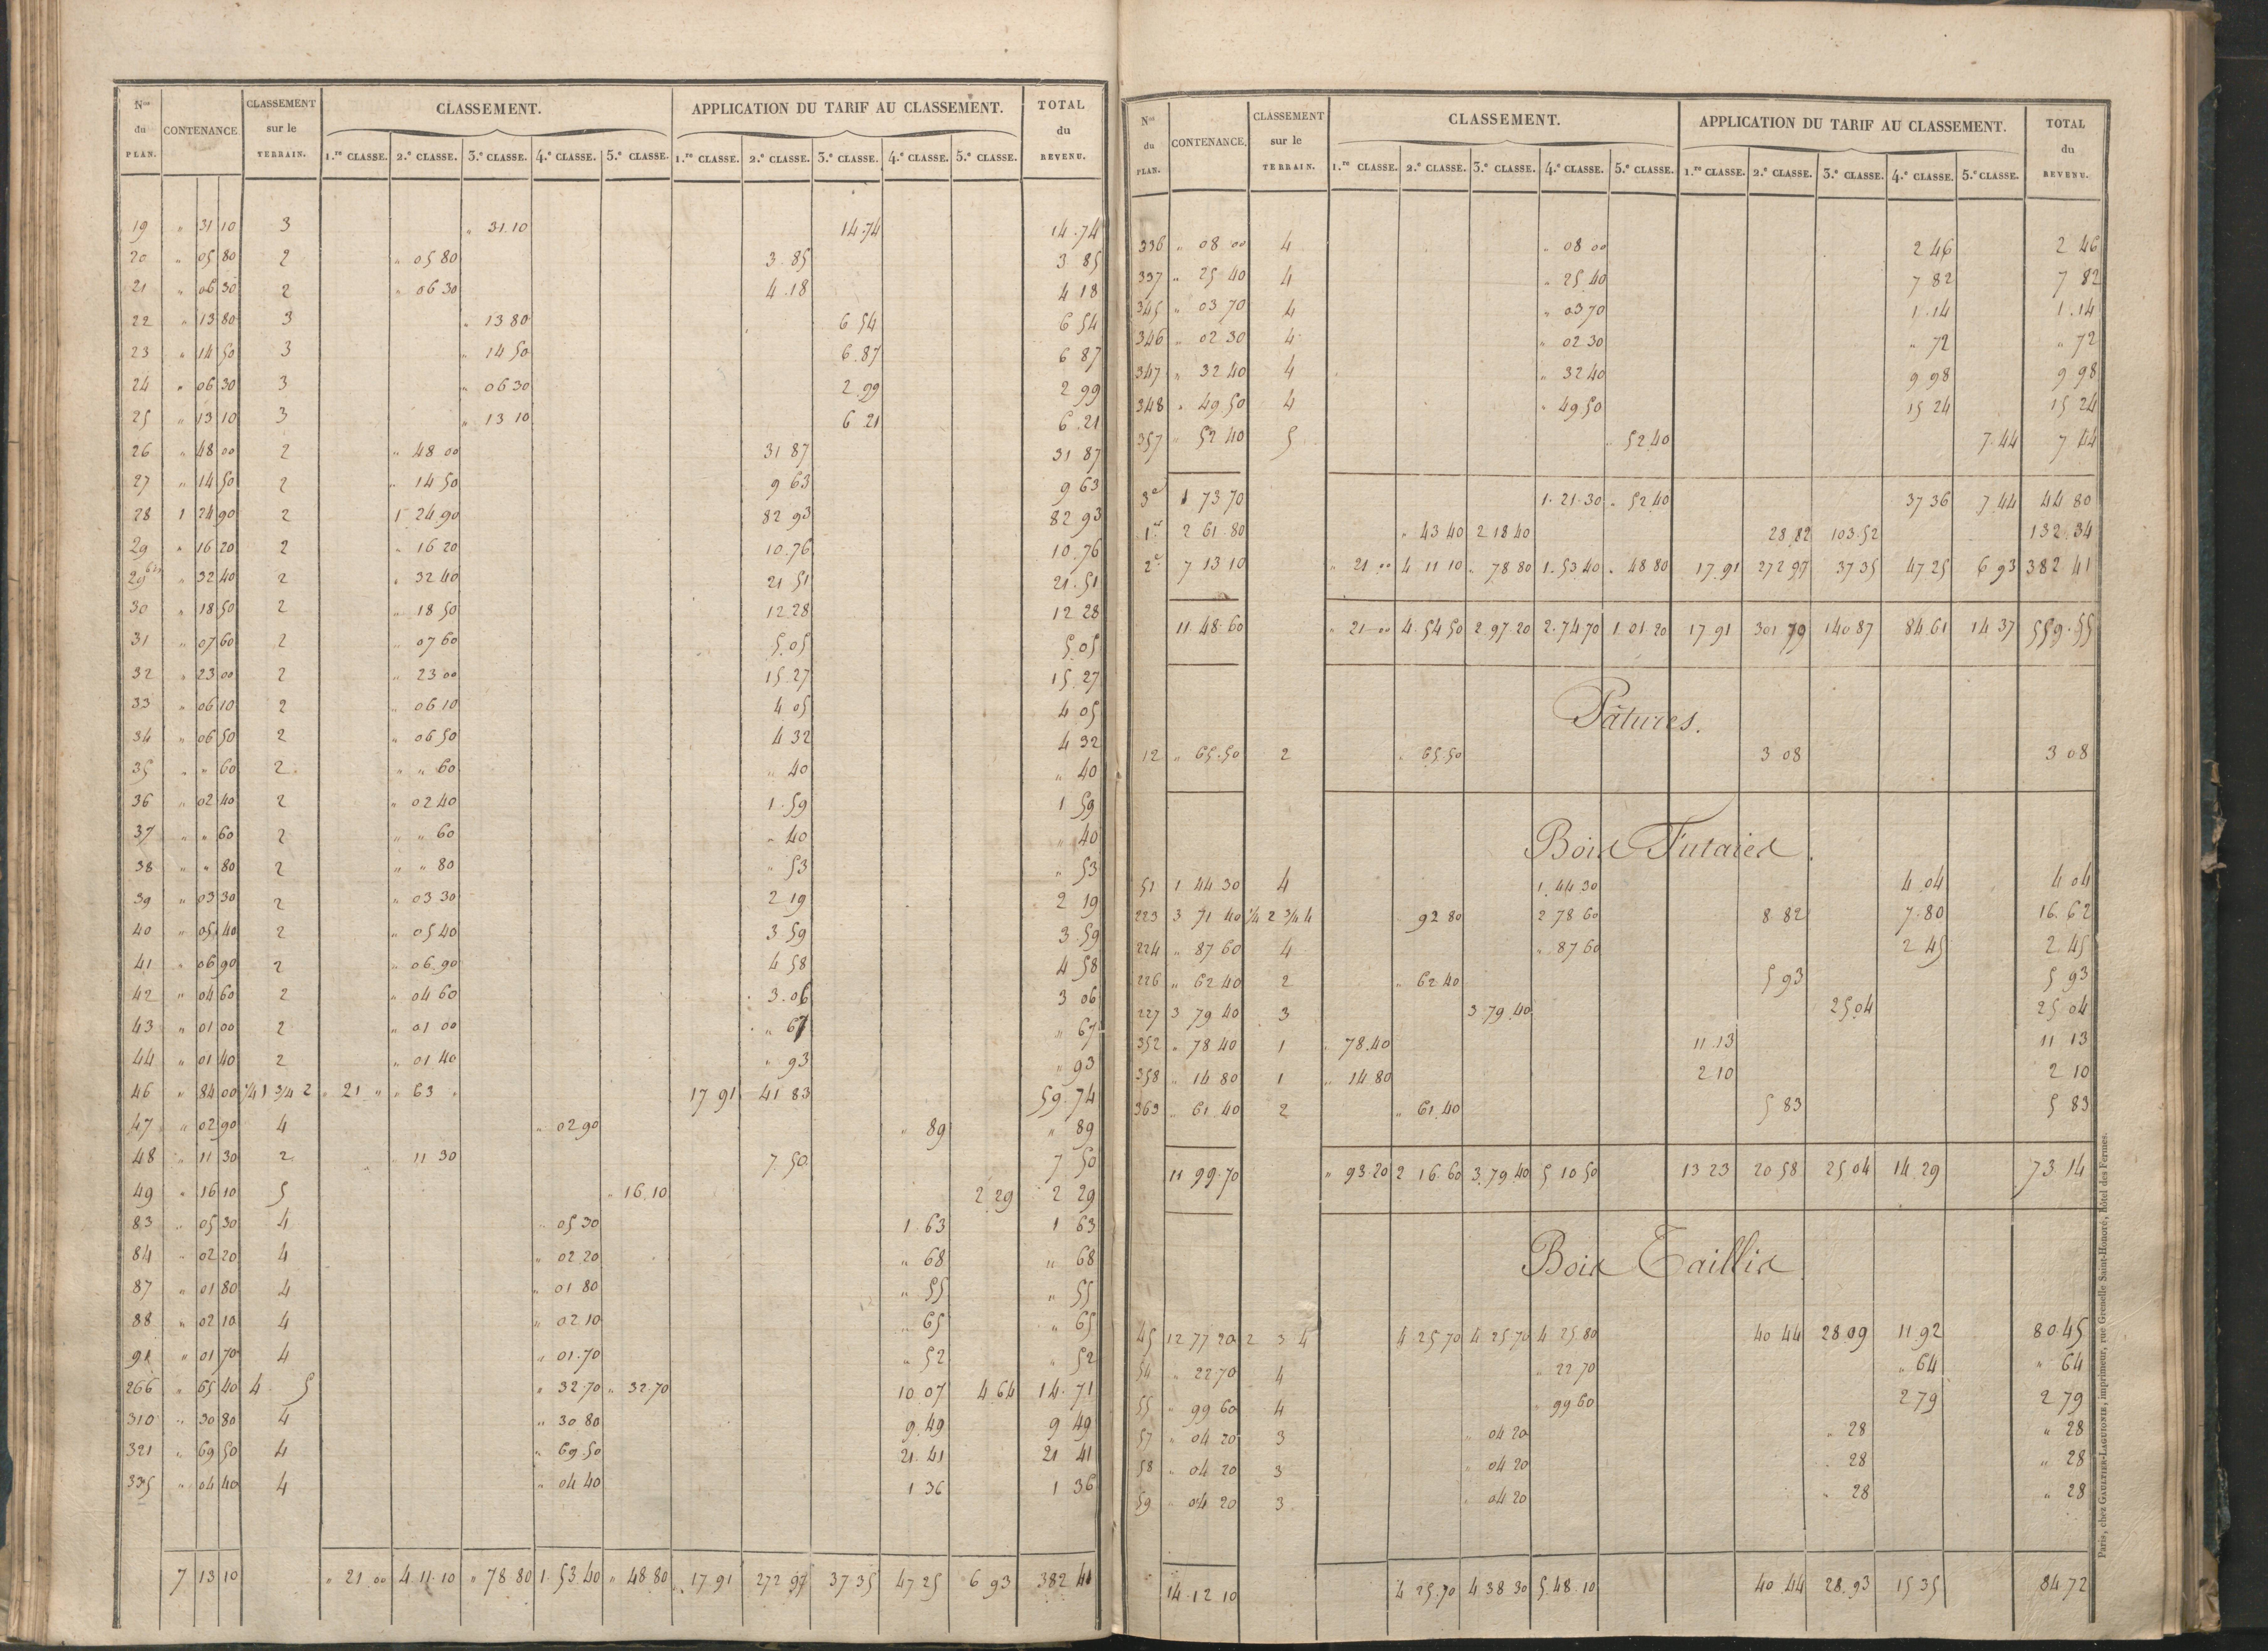 Nos du PLAN. CONTENANCE CLASSEMENT sur le TERRAIN. CLASSEMENT. APPLICATION DU TARIF AU CLASSEMENT. TOTAL du REVENU.
1.re CLASSE. 2.e CLASSE. 3.e CLASSE. 4.e CLASSE. 5.e CLASSE. 1.re CLASSE. 2.e CLASSE. 3.e CLASSE. 4.e CLASSE. 5.e CLASSE.
19 " 31 10 3 " 31.10 14.74 14.74
20 " 05 80 2 " 05 80 3.85 3 85
21 " 06 30 2 " 06 30 4.18 4 18
22 " 13 80 3 " 13 80 6 54 6 54
23 " 14 50 3 " 14 50 6.87 6 87
24 " 06 30 3 " 06 30 2.99 2 99
25 " 13 10 3 " 13 10 6 21 6.21
26 " 48 00 2 " 48 00 31 87 31 87
27 " 14 50 2 " 14 50 9 63 9 63
28 1 24 90 2 1 24.90 82 93 82 93
29 " 16 20 2 " 16 20 10.76 10.76
29bis " 32 40 2 " 32 40 21 51 21.51
30 " 18 50 2 " 18 50 12 28 12 28
31 " 07 60 2 " 07 60 5.05 5.05
32 " 23 00 2 " 23 00 15.27 15.27
33 " 06 10 2 " 06 10 4 05 4 05
34 " 06 50 2 " 06 50 4 32 4 32
35 " " 60 2 " " 60 " 40 " 40
36 " 02 40 2 " 02 40 1.59 1 59
37 " " 60 2 " " 60 " 40 " 40
38 " " 80 2 " " 80 " 53 " 53
39 " 03 30 2 " 03 30 2 19 2 19
40 " 05 40 2 " 05 40 3.59 3.59
41 " 06 90 2 " 06.90 4 58 4 58
42 " 04 60 2 " 04 60 3.06 3 06
43 " 01 00 2 " 01 00 " 67 " 67
44 " 01 40 2 " 01 40 " 93 " 93
46 " 84 00 1/4 1 3/4 2 " 21 " " 63 " 17 91 41 83 59.74
47 " 02 90 4 " 02 90 " 89 " 89
48 " 11 30 2 " 11 30 7.50 7 50
49 " 16 10 5 " 16.10 2 29 2 29
83 " 05 30 4 " 05 30 1.63 1 63
84 " 02 20 4 " 02 20 " 68 " 68
87 " 01 80 4 " 01 80 " 55 " 55
88 " 02 10 4 " 02 10 " 65 " 65
91 " 01 70 4 " 01.70 " 52 " 52
266 " 65 40 4 5 " 32.70 " 32.70 10.07 4 64 14.71
310 " 30 80 4 " 30 80 9.49 9 49
321 " 69 50 4 " 69.50 21 41 21 41
335 " 04 40 4 " 04 40 1 36 1 36
7 13 10 " 21.00 4.11.10 " 78 80 1.53.40 " 48 80 17 91 272 97 37 35 47 25 6 93 382 41
Nos du PLAN. CONTENANCE. CLASSEMENT sur le TERRAIN. CLASSEMENT. APPLICATION DU TARIF AU CLASSEMENT. TOTAL du REVENU.
1.re CLASSE. 2.e CLASSE. 3.e CLASSE. 4.e CLASSE. 5.e CLASSE. 1.re CLASSE. 2.e CLASSE. 3.e CLASSE. 4.e CLASSE. 5.e CLASSE.
336 " 08 00 4 " 08 00 2 46 2 46
337 " 25 40 4 " 25.40 7 82 7 82
345 " 03 70 4 " 03 70 1.14 1.14
346 " 02 30 4 " 02 30 " 72 " 72
347 " 32 40 4 " 32 40 9 98 9 98
348 " 49.50 4 " 49 50 15 24 15 24
357 " 52 40 5 " 52.40 7.44 7 44
3e 1 73 70 1.21.30 " 52 40 37 36 7 44 44 80
1re 2 61.80 " 43 40 2 18 40 28.82 103.52 132.34
2e 7 13 10 " 21 00 4 11 10 " 78 80 1.53 40 " 48 80 17.91 272 97 37 35 47 25 6 93 382 41
11.48.60 " 21 00 4.54 50 2.97.20 2.74 70 1 01 20 17.91 301 79 140 87 84.61 14 37 559.55
Pâtures.
12 " 65.50 2 " 65.50 3 08 3 08
Bois Futaies.
51 1 44 30 4 1.44 30 4.04 4 04
223 3 71 40 1/4 2 3/4 4 " 92 80 2 78 60 8 82 7.80 16.62
224 " 87 60 4 " 87 60 2 45 2 45
226 " 62 40 2 " 62 40 5 93 5 93
227 3 79 40 3 3.79.40 25.04 25 04
352 " 78 40 1 " 78.40 11.13 11 13
358 " 14 80 1 " 14 80 2 10 2 10
363 " 61 40 2 " 61.40 5 83 5 83
11 99.70 " 93.20 2 16.60 3.79 40 5 10 50 13 23 20 58 25 04 14 29 73 14
Bois Taillis
45 12 77 20 2 3 4 4 25 70 4.25.70 4 25 80 40 44 28.09 11.92 80.45
54 " 22 70 4 " 22 70 " 64 " 64
55 " 99 60 4 " 99 60 2 79 2 79
57 " 04 20 3 " 04 20 " 28 " 28
58 " 04 20 3 " 04 20 " 28 " 28
59 " 04 20 3 " 04 20 " 28 " 28
14.12 10 4 25.70 4 38 30 5.48.10 40 44 28.93 15 35 84.72
Paris, chez GAULTIER-LAGUIONIE, imprimeur, rue Grenelle Saint-Honoré, hôtel des Fermes.